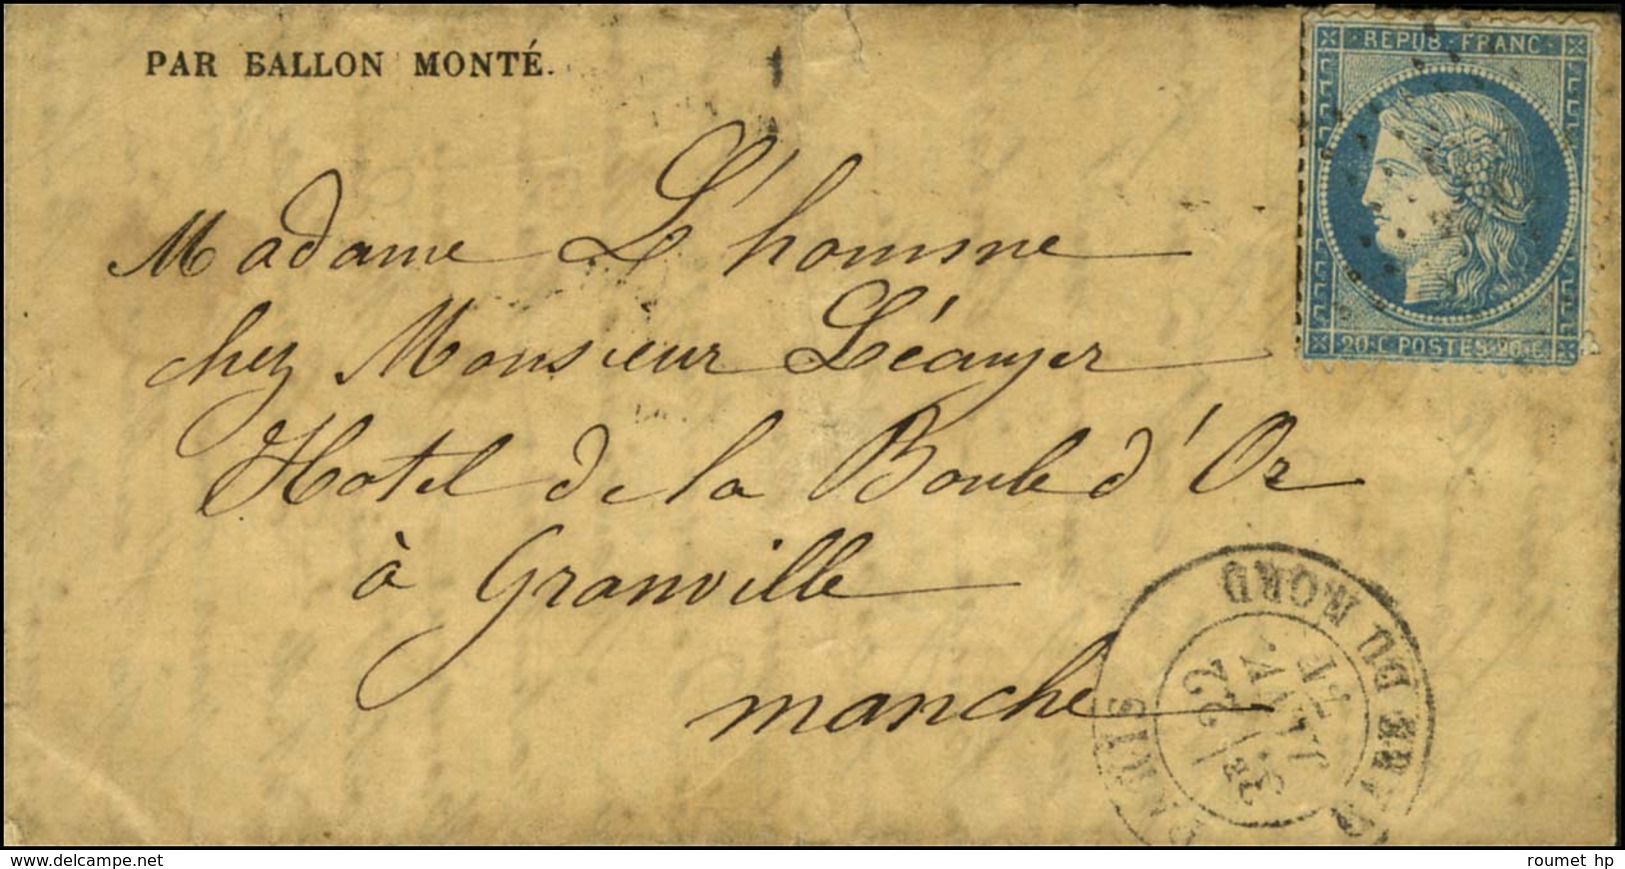 PAR BALLON MONTÉ.
REPUB. FRANC.
20.C POSTES 20.C
Madame L'homme
chez Monsieur Léauger
Hotel de la Boule d'Or
à Granville
manche
PARIS GARE DU NORD
3E 22 JANV. 71
www.delcampe.net
roumet hp